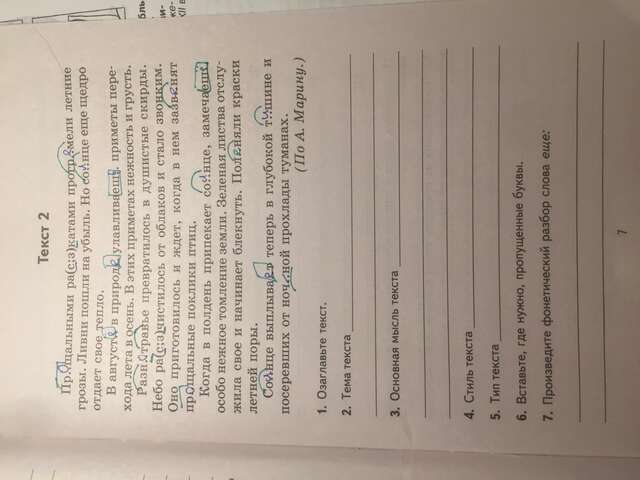 Текст 2
Прощальными ра(с;з)катами прогремели летние
грозы. Ливни пошли на убыль. Но солнце еще щедро
отдает свое тепло.
В августе в природе улавливаешь приметы пере-
хода лета в осень. В этих приметах нежность и грусть.
Разнотравье превратилось в душистые скирды.
Небо ра(с;з)чистилось от облаков и стало звонким.
Оно приготовилось и ждет, когда в нем зазвенят
прощальные поклики птиц.
Когда в полдень припекает солнце, замечаешь
особо нежное томление земли. Зеленая листва отслу-
жила свое и начинает блекнуть. Полиняли краски
летней поры.
Солнце выплывает теперь в глубокой тишине и
посеревших от ночной прохлады туманах.
(По А. Марину.)
1. Озаглавьте текст.
2. Тема текста
3. Основная мысль текста
4. Стиль текста
5. Тип текста
6. Вставьте, где нужно, пропущенные буквы.
7. Произведите фонетический разбор слова еще:
7